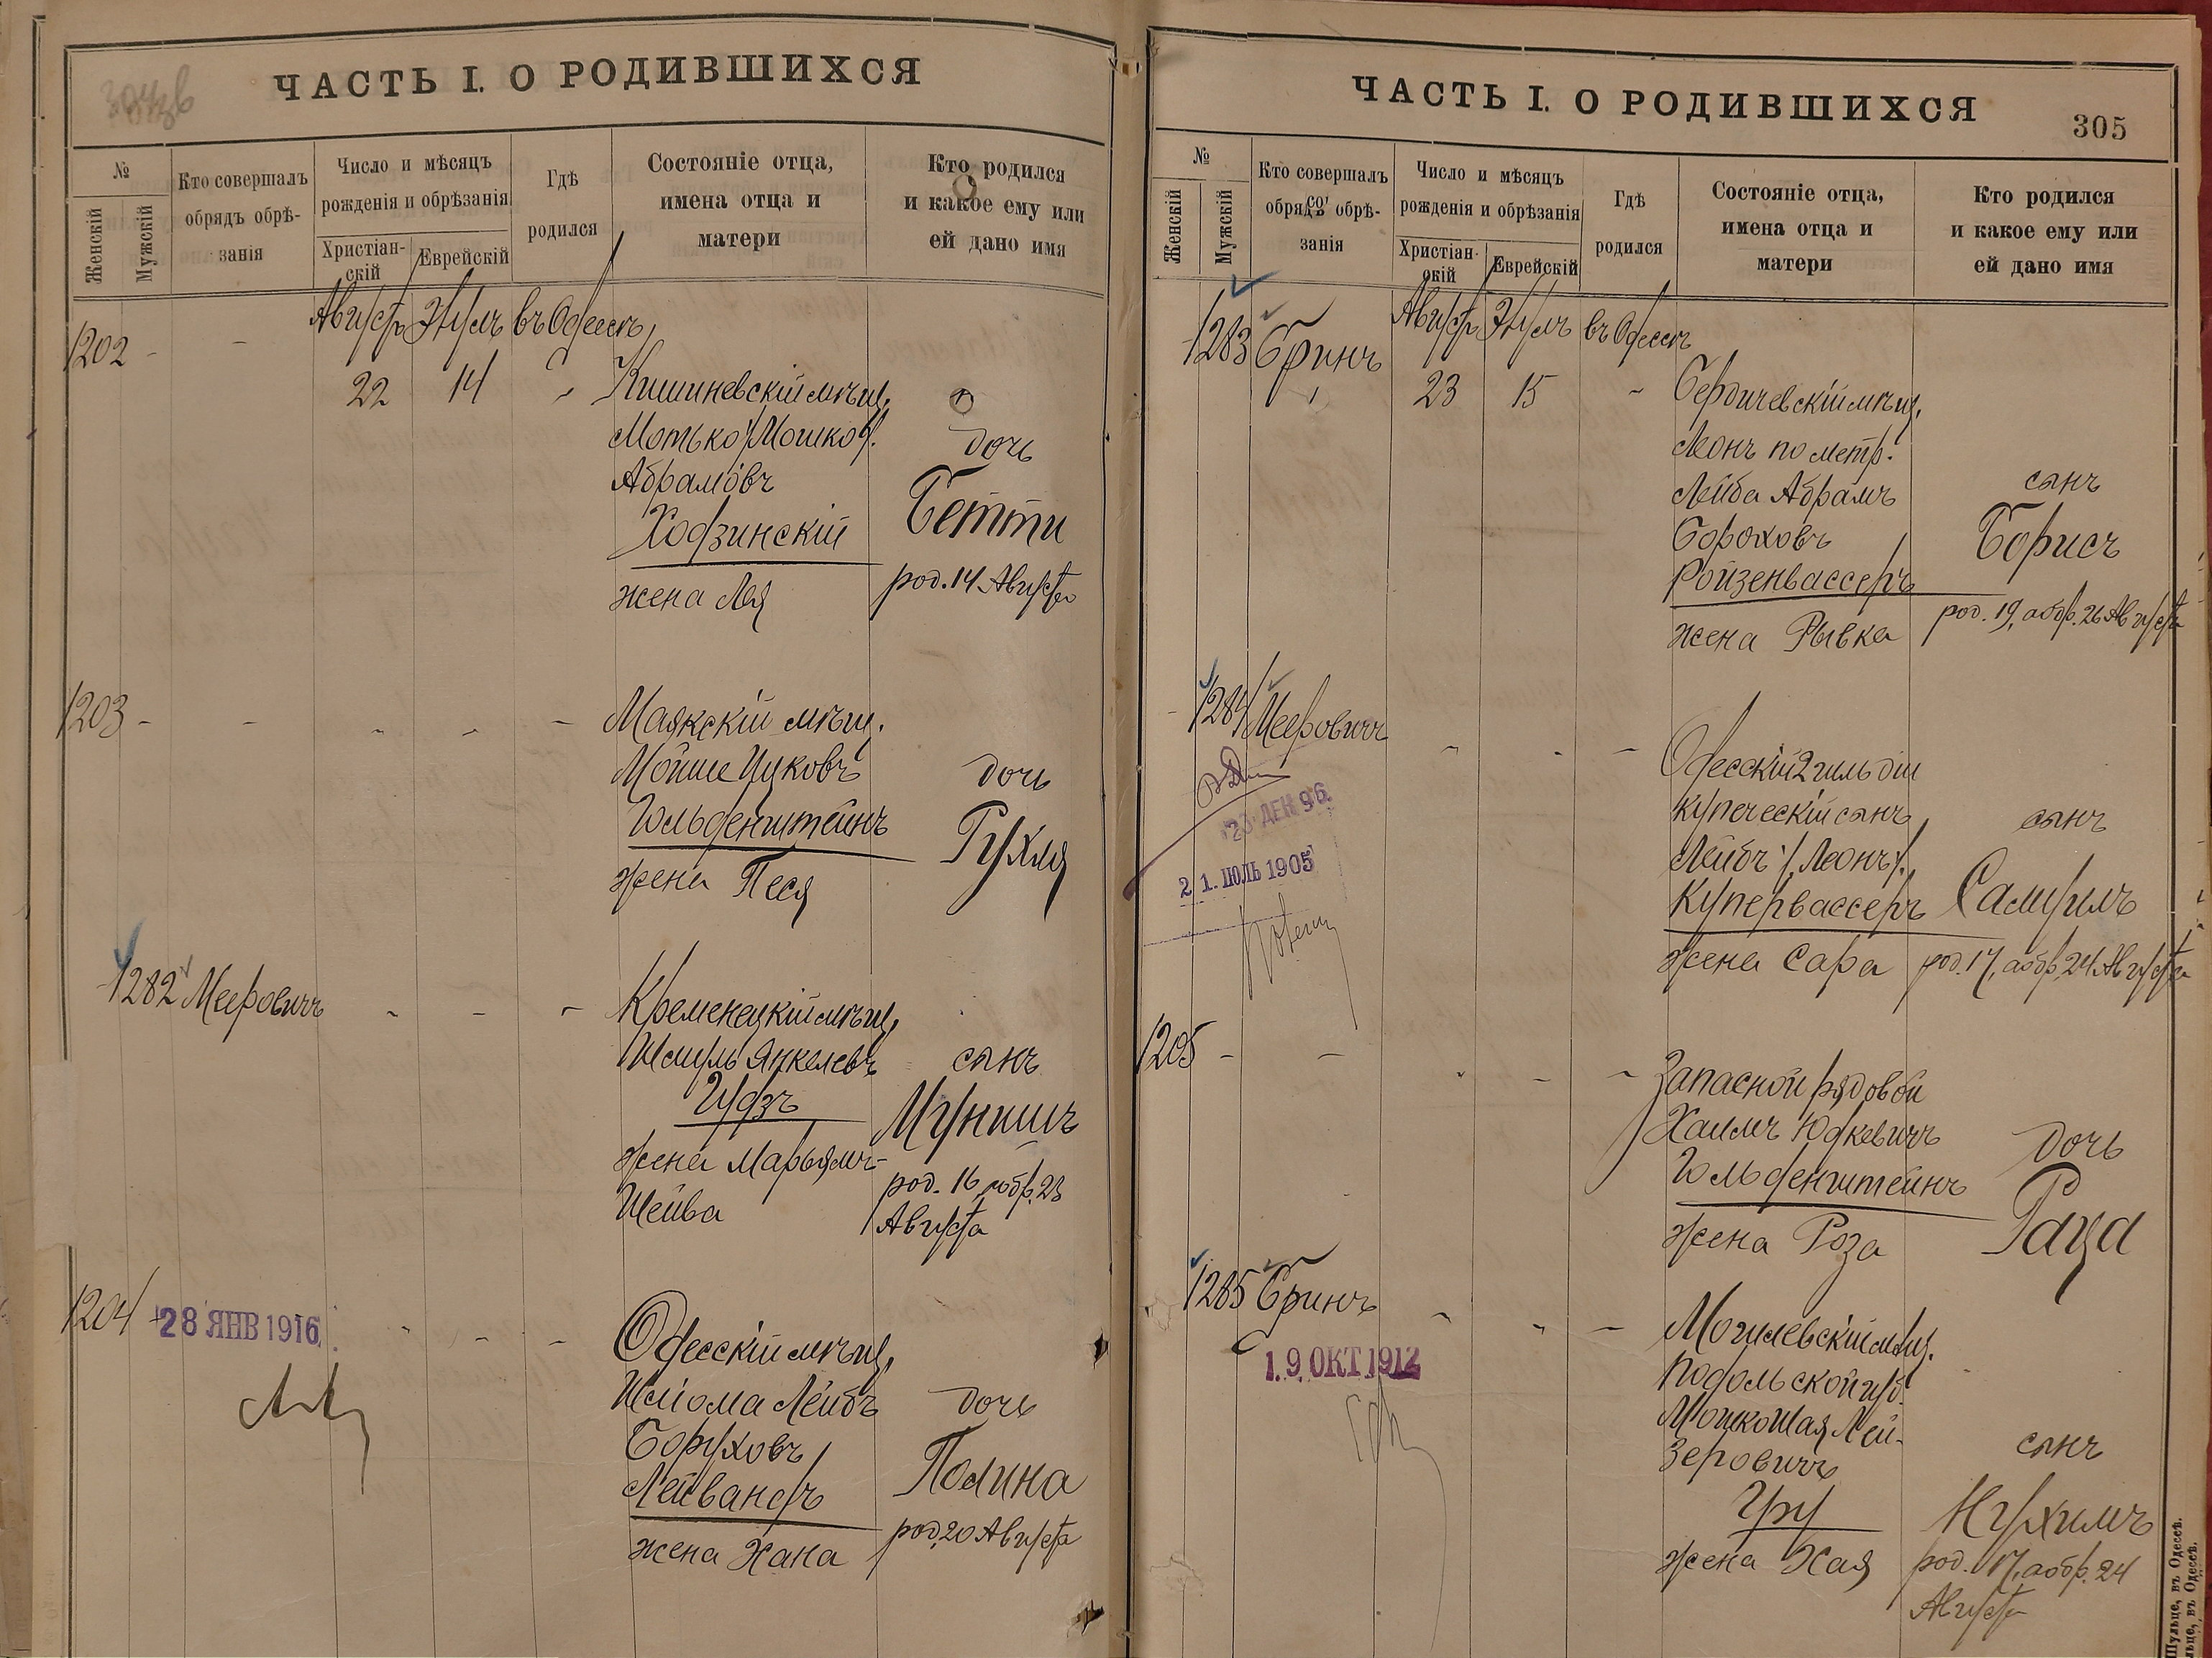 ЧАСТЬ I. О РОДИВШИХСЯ
№
Женскій
Мужскій
Кто совершалъ
обрядъ обрѣ-
занія
Число и мѣсяцъ
рожденія и обрѣзанія
Христіан-
скій
Еврейскій
Гдѣ
родился
Состояніе отца,
имена отца и
матери
Кто родился
и какое ему или
ей дано имя
1202 - - Августъ Элулъ въ Одессѣ
22 14 Кишиневскій мѣщ.
Мотько /Мошко/ дочь
Абрамовъ
Ходзинскій Бетти
жена Лея род. 14 Августа
1203 - - Маякскій мѣщ.
Мойше Ицковъ дочь
Гольденштейнъ Рухля
жена Песя
1282 Мееровичъ Кременецкій мѣщ.
Шмуль Янкелевъ сынъ
Гудзъ Мунишъ
жена Марьямъ-
Шейва
род. 16, обр. 23
Августа
1204 28 ЯНВ 1916
Одесскій мѣщ.
Шліома Лейбъ дочь
Боруховъ
Лейвандъ Полина
жена Хана род. 20 Августа
ЧАСТЬ I. О РОДИВШИХСЯ
305
№
Женскій
Мужскій
Кто совершалъ
обрядъ обрѣ-
занія
Число и мѣсяцъ
рожденія и обрѣзанія
Христіан-
скій
Еврейскій
Гдѣ
родился
Состояніе отца,
имена отца и
матери
Кто родился
и какое ему или
ей дано имя
1283 Бринъ Августъ Элулъ въ Одессѣ
23 15 Бердичевскій мѣщ.
Леонъ по метр.
Лейба Абрамъ сынъ
Бороховъ Борисъ
Ройзенвассеръ
жена Рывка род. 19, обр. 26 Августа
1284 Мееровичъ
Одесскій 2 гильдіи
купеческій сынъ сынъ
23 ДЕК 96
Лейбъ /Леонъ/
21. ІЮЛЬ 1905
Купервассеръ Самуилъ
жена Сара род. 17, обр. 24 Августа
1205 - -
Запасной рядовой
Хаимъ Юдкевичъ дочь
Гольденштейнъ
жена Роза Раца
1285 Бринъ
Могилевскій мѣщ.
19 ОКТ 1912
Подольской губ.
Мошко Шая Лей-
зеровичъ сынъ
Гру Нухимъ
жена Хая род. 17, обр. 24
Августа